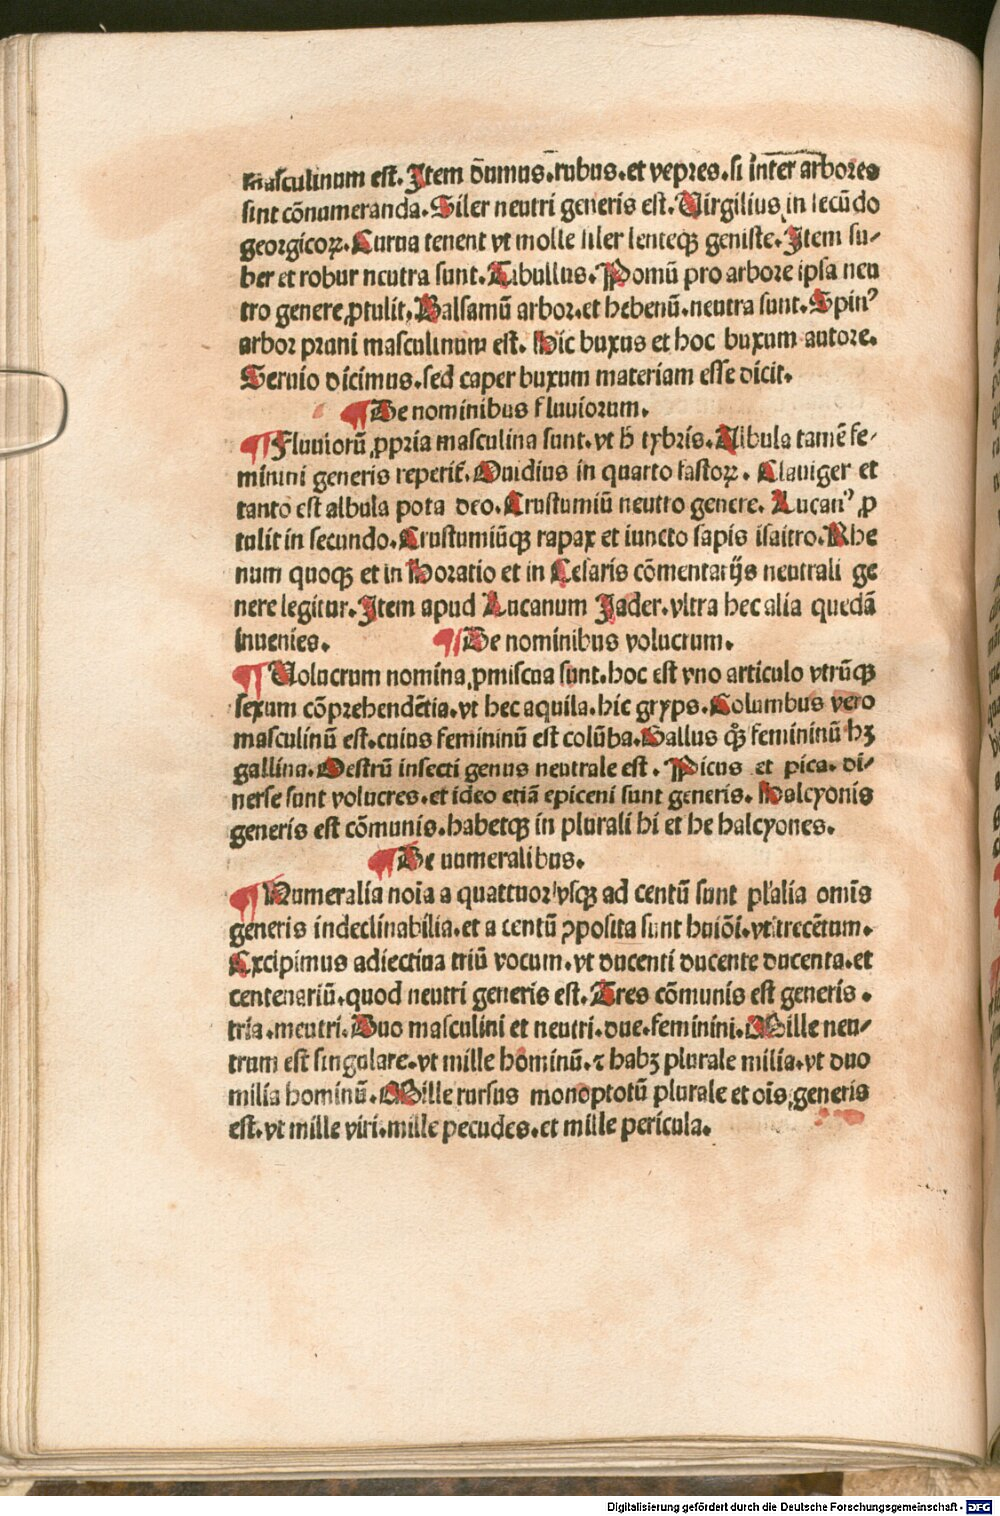 masculinum est. Item dumus. rubus. et vepres. si inter arbores
sint cōnumeranda. Siler neutri generis est. Virgilius in secūdo
georgicoꝝ. Curua tenent vt molle siler lenteqꝫ geniste. Item su-
ber et robur neutra sunt. Tibullus. Pomū pro arbore ipsa neu
tro genere ꝓtulit. Balsamū arbor. et hebenū. neutra sunt. Spinꝰ
arbor pruni masculinum est. Hic buxus et hoc buxum autore.
Seruio dicimus. sed caper buxum materiam esse dicit.
¶ De nominibus fluuiorum.
¶ Fluuiorū ꝓpria masculina sunt. vt h̄ tybris. Albula tamē fe-
minini generis reperit᷑. Ouidius in quarto fastoꝝ. Clauiger et
tanto est albula pota deo. Crustumiū neutro genere. Lucanꝰ ꝓ
tulit in secundo. Crustumiūqꝫ rapax et iuncto sapis isauro. Rhe
num quoqꝫ et in Horatio et in Cesaris cōmentarijs neutrali ge
nere legitur. Item apud Lucanum Jader. vltra hec alia quedā
inuenies. ¶ De nominibus volucrum.
¶ Volucrum nomina ꝓmiscua sunt. hoc est vno articulo vtrūqꝫ
sexum cōprehendētia. vt hec aquila. hic gryps. Columbus vero
masculinū est. cuius femininū est colūba. Gallus qͦꝫ femininū hꝫ
gallina. Oestrū insecti genus neutrale est. Picus et pica. di-
uerse sunt volucres. et ideo etiā epiceni sunt generis. Halcyonis
generis est cōmunis. habetqꝫ in plurali hi et he halcyones.
¶ De numeralibus.
¶ Numeralia noīa a quattuor vsqꝫ ad centū sunt pl'alia omīs
generis indeclinabilia. et a centū ꝓposita sunt huiōi. vt trecētum.
Excipimus adiectiua triū vocum. vt ducenti ducente ducenta. et
centenariū. quod neutri generis est. Tres cōmunis est generis.
tria. neutri. Duo masculini et neutri. due. feminini. Mille neu-
trum est singulare. vt mille hominū. ⁊ habꝫ plurale milia. vt duo
milia hominū. Mille rursus monoptotū plurale et oīs generis
est. vt mille viri. mille pecudes. et mille pericula.
Digitalisierung gefördert durch die Deutsche Forschungsgemeinschaft - DFG